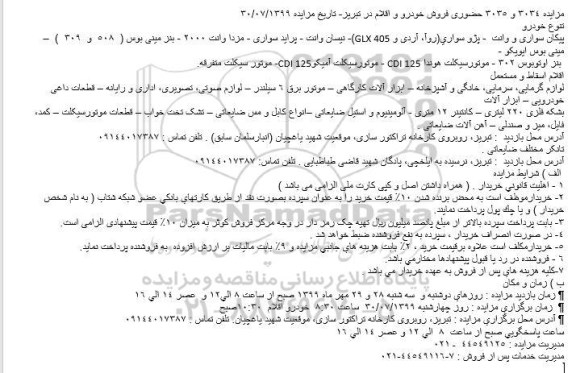 مزایده ۳۰۳۴ و ۳۰۳۵ حضوری فروش خودرو و اقلام در تبریز- تاریخ مزایده ۳۰/۰۷/۱۳۹۹
تنوع خودرو
پیکان سواری و وانت - پژو سواری(روآ، آردی و GLX 405)- نیسان وانت - پراید سواری - مزدا وانت ۲۰۰۰ - بنز مینی بوس ( ۵۰۸ و ۳۰۹ ) –
مینی بوس ایویکو -
بنز اوتوبوس ۳۰۲ - موتورسیکلت هوندا CDI 125 - موتورسیکلت آمیکوCDI 125- موتور سیکلت متفرقه.
اقلام اسقاط و مستعمل
لوازم گرمایی، سرمایی، خانگی و آشپزخانه – ابزار آلات کارگاهی – موتور برق ۶ سیلندر – لوازم صوتی، تصویری، اداری و رایانه – قطعات داغی
خودرویی – ابزار آلات
بشکه فلزی ۲۲۰ لیتری – کانتینر ۱۲ متری - آلومینیوم و استیل ضایعاتی –انواع کابل و مس ضایعاتی – تشک تخت خواب – قطعات موتورسیکلت – کمد،
فایل، میز و صندلی – آهن آلات ضایعاتی .
آدرس محل بازدید : تبریز، روبروی کارخانه تراکتور سازی، موقعیت شهید یاغچیان (انبارسلمان سابق) . تلفن تماس : ۰۹۱۴۴۰۱۷۳۸۷
تانکر مختلف ضایعاتی .
آدرس محل بازدید : تبریز، نرسیده به ایلخچی، پادگان شهید قاضی طباطبایی . تلفن تماس: ۰۹۱۴۴۰۱۷۳۸۷
الف ) شرایط مزایده
۱ - اهلیت قانونی خریدار . ( همراه داشتن اصل و کپی کارت ملی الزامی می باشد )
۲- خریدارموظف است به محض برنده شدن ۱۰٪ قیمت خرید را به عنوان سپرده بصورت نقد از طریق کارتهای بانکی عضو شبکه شتاب ( به نام شخص
خریدار ) و یا چك پول پرداخت نمایند.
۳- بابت پرداخت سپرده بالاتر از مبلغ پانصد میلیون ریال تهیه چک رمز دار در وجه مرکز فروش کوثر به میزان ۱۰٪ قیمت پیشنهادی الزامی است.
۴- در صورت انصراف خریدار ، سپرده به نفع فروشنده ضبط خواهد شد .
۵- خریدارمکلف است علاوه برقیمت خرید ، ۲٪ بابت هزینه های جانبی مزایده و ۹٪ بابت مالیات بر ارزش افزوده به فروشنده پرداخت نماید.
۶ - فروشنده در رد یا قبول پیشنهادها مختارمی باشد.
۷-کلیه هزینه های پس از فروش به عهده خریدار می باشد
ب ) زمان و مکان
¶ زمان بازدید مزایده : روزهای دوشنبه و سه شنبه ۲۸ و ۲۹ مهر ماه ۱۳۹۹ صبح از ساعت ۸ الی ۱۲ و عصر ۱۴ الی ۱۶
¶ زمان برگزاری مزایده : روز چهارشنبه ۳۰/۰۷/۱۳۹۹ ساعت ۸:۳۰ خودرو اقلام ۱۰:۳۰ صبح
¶ آدرس محل برگزاری مزایده : تبریز، روبروی کارخانه تراکتور سازی، موقعیت شهید یاغچیان. تلفن تماس : ۰۹۱۴۴۰۱۷۳۸۷
ساعت پاسخگویی صبح از ساعت ۸ الی ۱۲ و عصر ۱۴ الی ۱۶
مدیریت مزایده : ۴۴۵۴۹۱۲۵ - ۰۲۱
مدیریت خدمات پس از فروش : ۷-۴۴۵۴۹۱۱۶-۰۲۱
پایگاه اطلاع رسانی مناقصه و مزایده